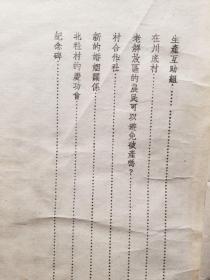 生產互助組……………
在川底村……………
老解放區的農民可以避免破產嗎？……………
村合作社……………
新的婚姻關係……………
北程村的慶功會……………
紀念碑……………